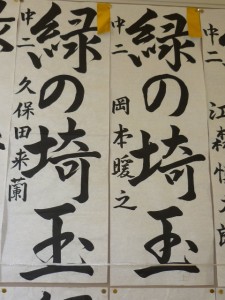 緑の埼玉
中二 岡本暖之
緑の埼玉
中二 久保田来蘭
中二 江森